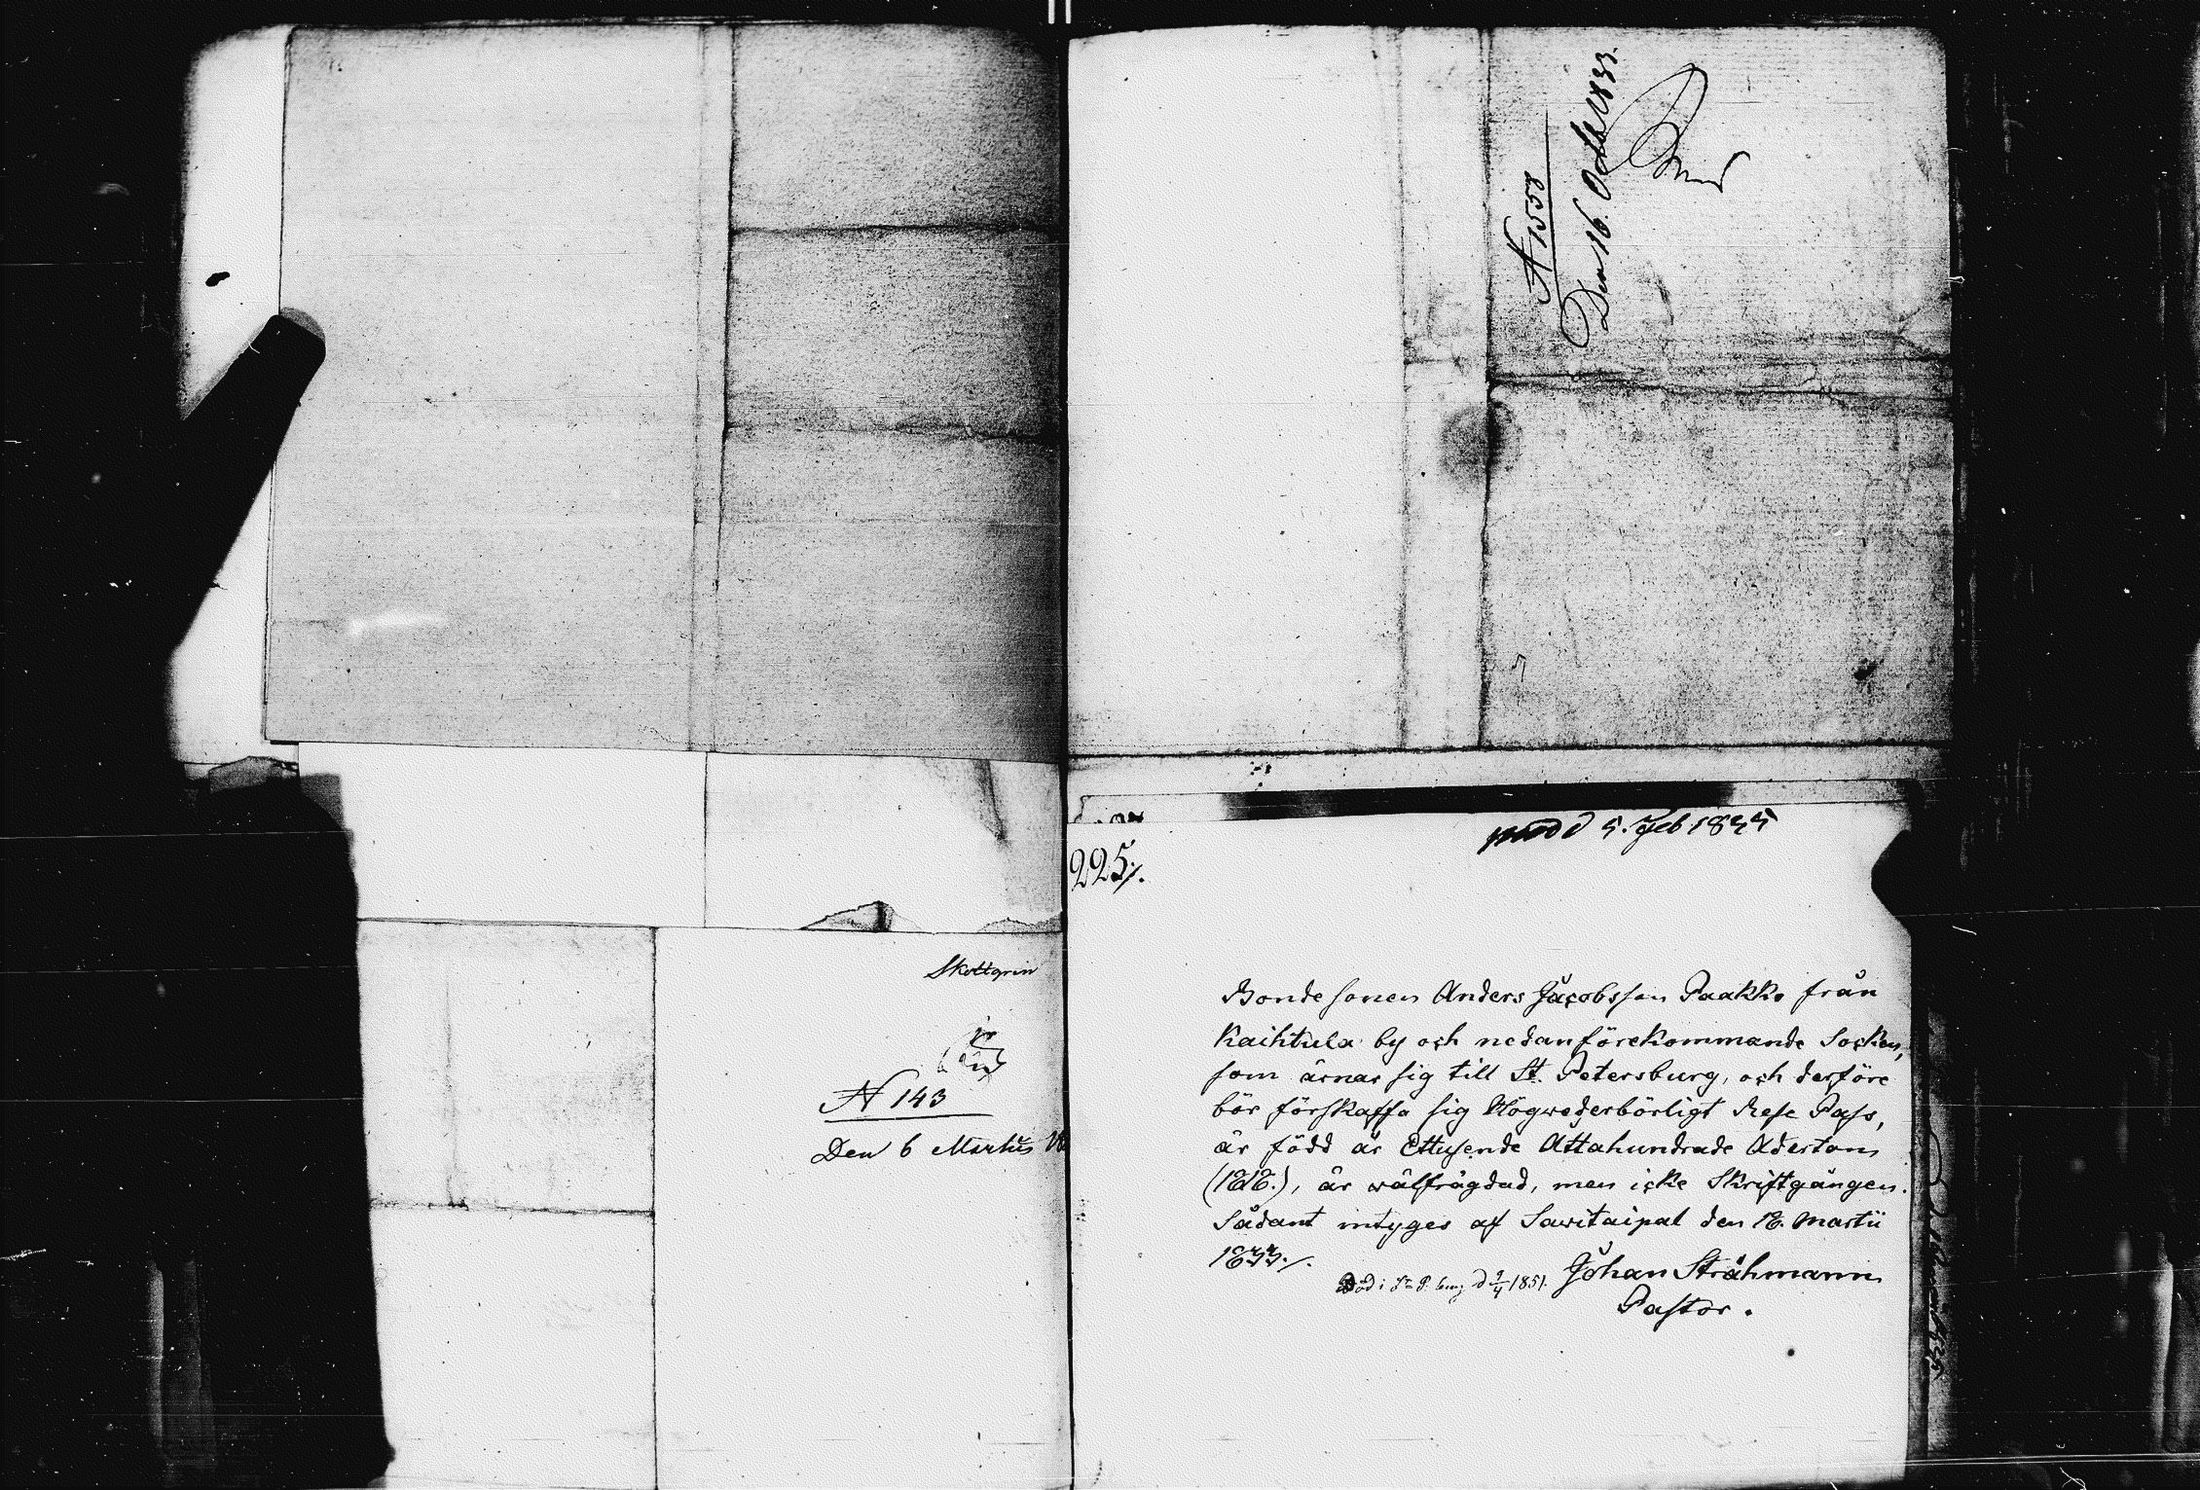 N 1558
Den 16. Octb. 1833.
Skottgrin
N 143
Den 6 Martii
225⁄.
d 5. Feb 1835
Bondesonen Anders Jacobsson Paakko från
Kaihtula by och nedanförekommande Socken,
som ärnar sig till St. Petersburg, och derföre
bör förskaffa sig Högwederbörligt Rese Pass,
är född år Ettusende Åttahundrade Aderton
(1818.), är wälfrägdad, men icke Skriftgången.
Sådant intyges af Sawitaipal den 18. Martii
1833⁄.
Död i St. P. burg d 9/4 1851.
Johan Stråhmann
Pastor.